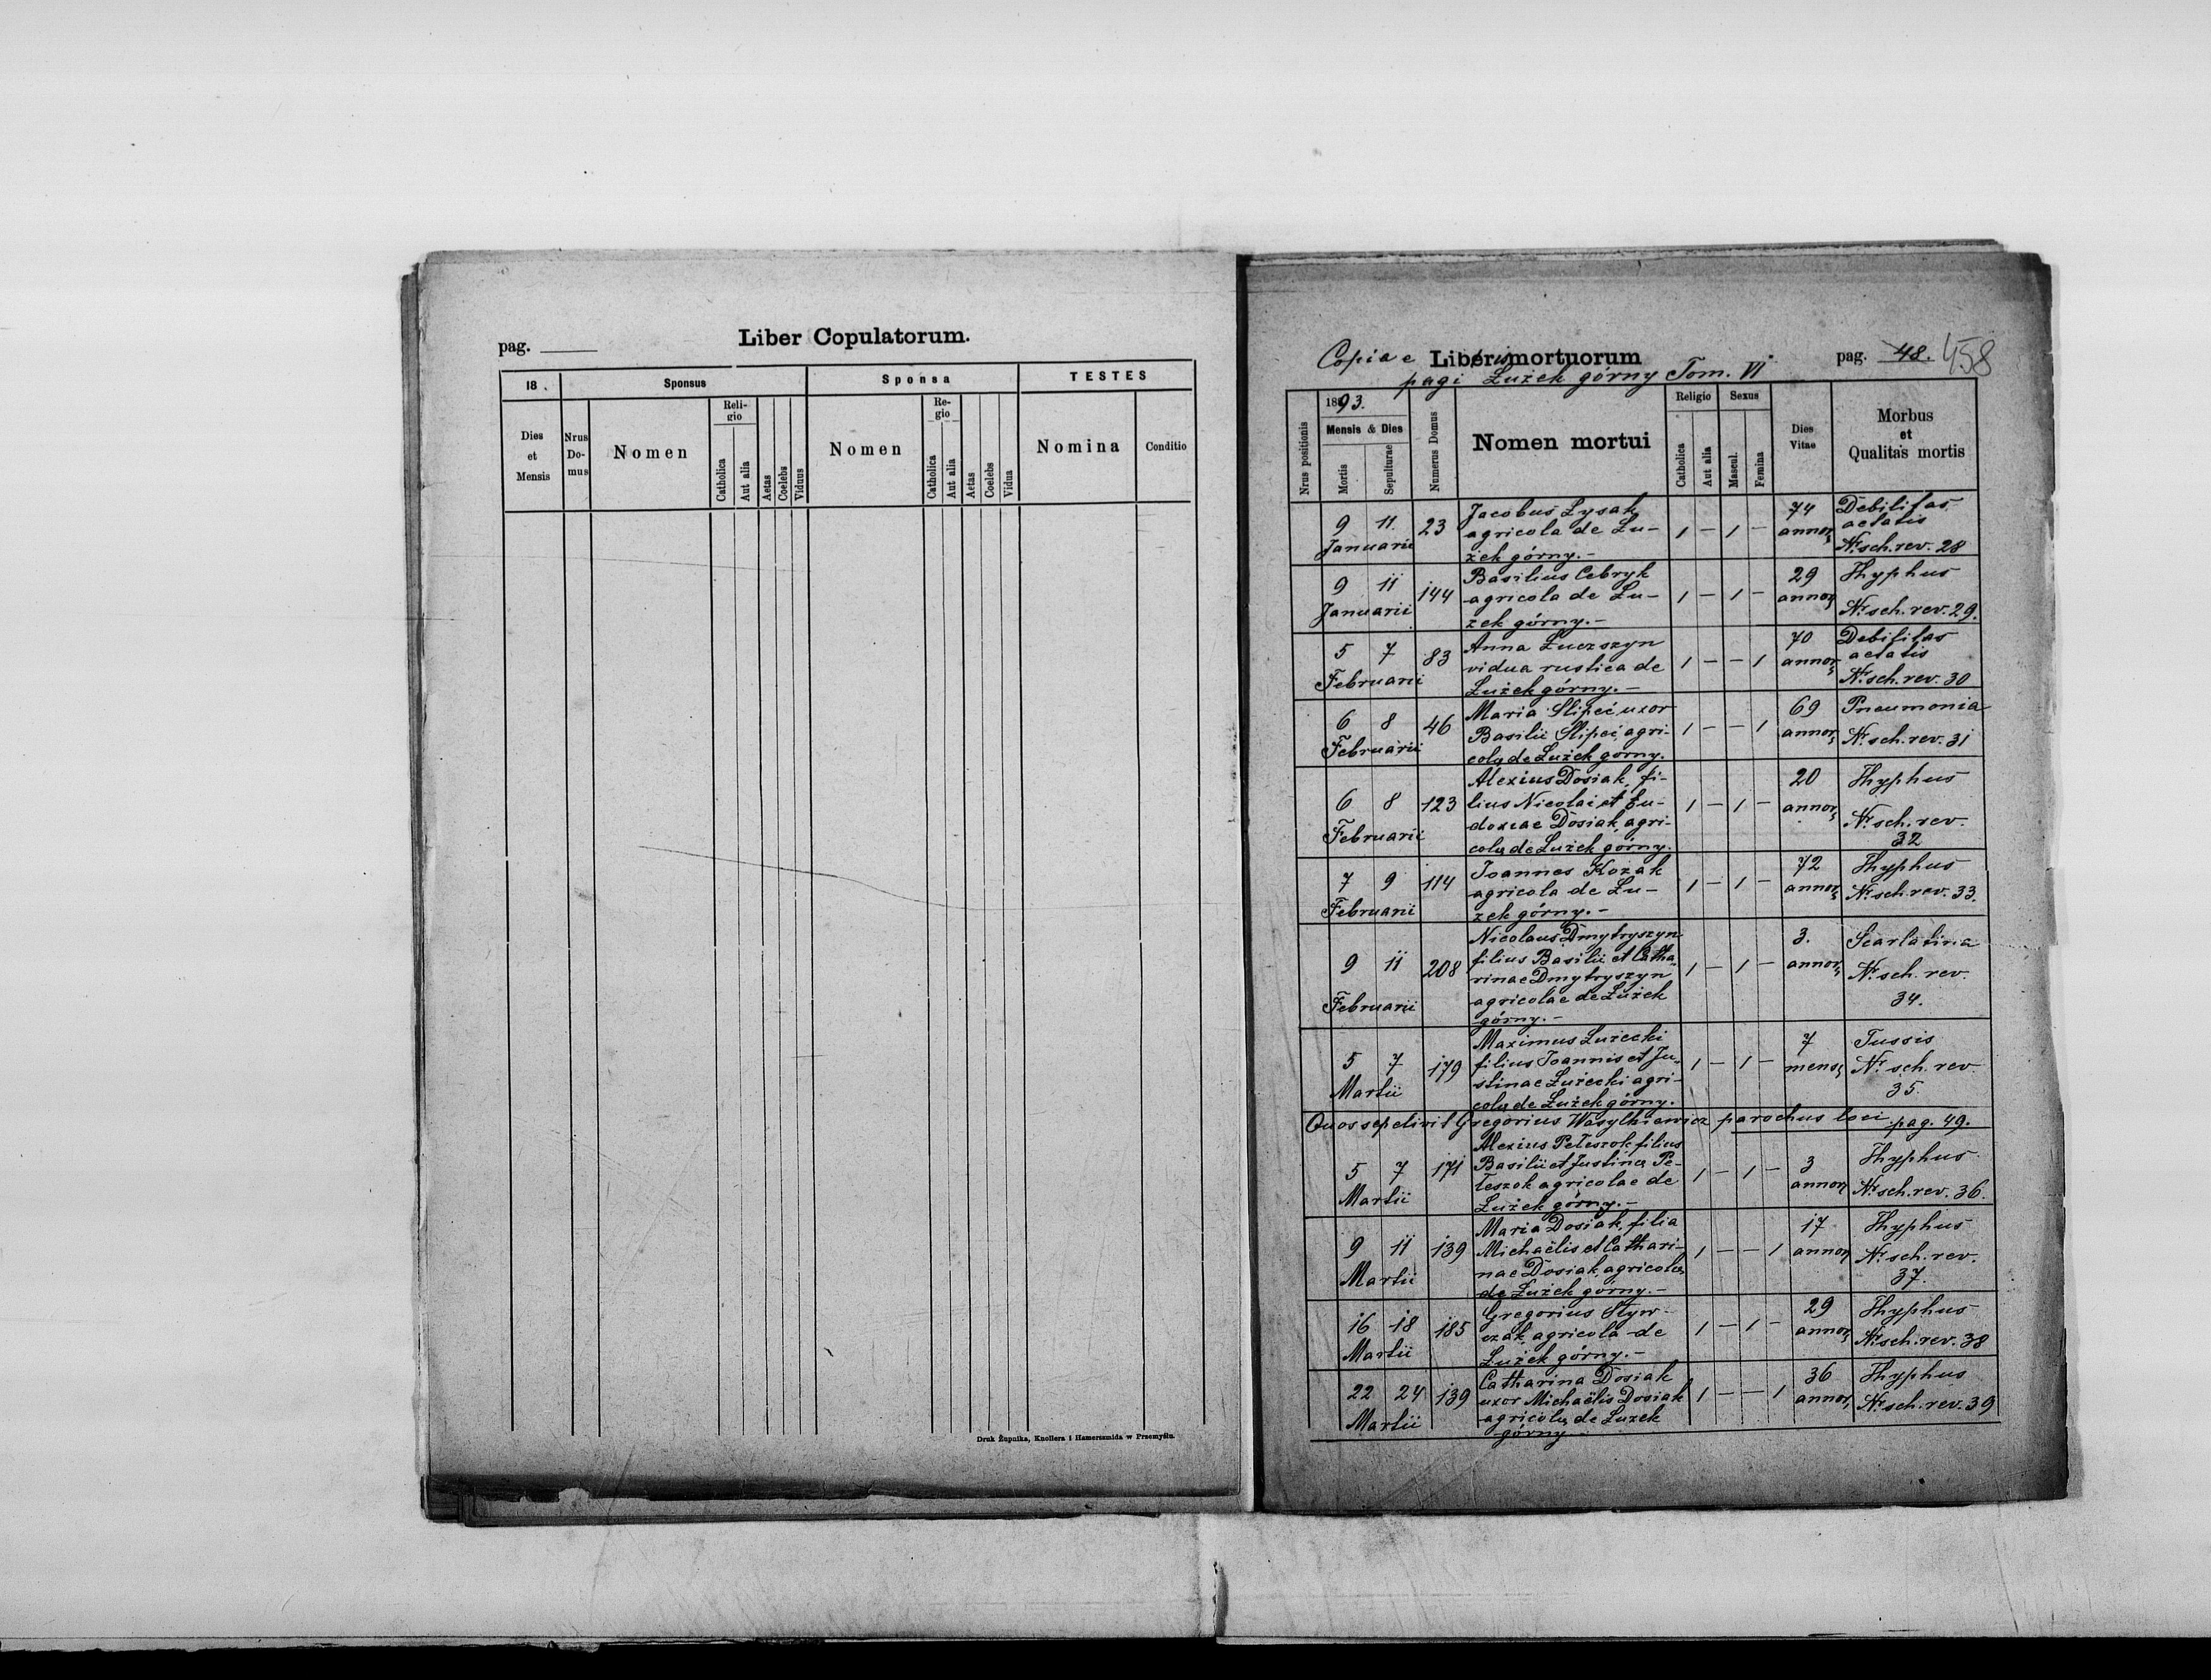 pag.
Liber Copulatorum.
18 .
Sponsus
Sponsa
TESTES
Dies et Mensis
Nrus Do-mus
Nomen
Reli-gio
Catholica
Aut alia
Aetas
Coelebs
Viduus
Nomen
Re-gio
Catholica
Aut alia
Aetas
Coelebs
Vidua
Nomina
Conditio
Druk Żupnika, Knollera i Hamerszmida w Przemyślu.
Copiae Liber mortuorum
pag. 48. 458
pagi Łużek górny Tom. VI
Nrus positionis
1893.
Mensis & Dies
Mortis
Sepulturae
Numerus Domus
Nomen mortui
Religio
Catholica
Aut alia
Sexus
Mascul.
Femina
Dies Vitae
Morbus
et
Qualitas mortis
9 11 Januarii 23
Jacobus Lysak
agricola de Łu-
żek górny.-
1 - 1 -
74 annor
Debilitas
aetatis
Nr. sch. rev. 28
9 11 Januarii 144
Basilius Cebryk
agricola de Łu-
żek górny.-
1 - 1 -
29 annor
Thyphus
Nr. sch. rev. 29.
5 7 Februarii 83
Anna Łuczszyn
vidua rustica de
Łużek górny.-
1 - - 1
70 annor
Debilitas
aetatis
Nr. sch. rev. 30
6 8 Februarii 46
Maria Slipeć uxor
Basilii Slipeć, agri-
colę de Łużek górny.
1 - - 1
69 annor
Pneumonia
Nr. sch. rev. 31
6 8 Februarii 123
Alexius Dosiak, fi-
lius Nicolai et Eu-
doxeae Dosiak, agri-
colę de Łużek górny.
1 - 1 -
20 annor
Thyphus
Nr. sch. rev.
32
7 9 Februarii 114
Joannes Kozak
agricola de Łu-
żek górny.-
1 - 1 -
72 annor
Thyphus
Nr. sch. rev. 33.
9 11 Februarii 208
Nicolaus Dmytryszyn
filius Basilii et Catha-
rinae Dmytryszyn
agricolae de Łużek
górny.-
1 - 1 -
3. annor
Scarlatina
Nr. sch. rev.
34.
5 7 Martii 179
Maximus Łużecki
filius Joannis et Ju-
stinae Łużecki agri-
colę de Łużek górny.
1 - 1 -
7 mens
Tussis
Nr. sch. rev.
35.
Quos sepelivit Gregorius Wasylkiewicz parochus loci pag. 49.
5 7 Martii 171
Alexius Peleszok filius
Basilii et Justinę Pe-
leszok agricolae de
Łużek górny.-
1 - 1 -
3 annor
Thyphus
Nr. sch. rev. 36.
9 11 Martii 139
Maria Dosiak, filia
Michaëlis et Cathari-
nae Dosiak, agricolę
de Łużek górny.-
1 - - 1
17 annor
Thyphus
Nr. sch. rev.
37.
16 18 Martii 185
Gregorius Styw-
czak, agricola de
Łużek górny.-
1 - 1 -
29 annor
Thyphus
Nr. sch. rev. 38
22 24 Martii 139
Catharina Dosiak
uxor Michaëlis Dosiak
agricolę de Łużek
górny -
1 - - 1
36 annor
Thyphus
Nr. sch. rev. 39